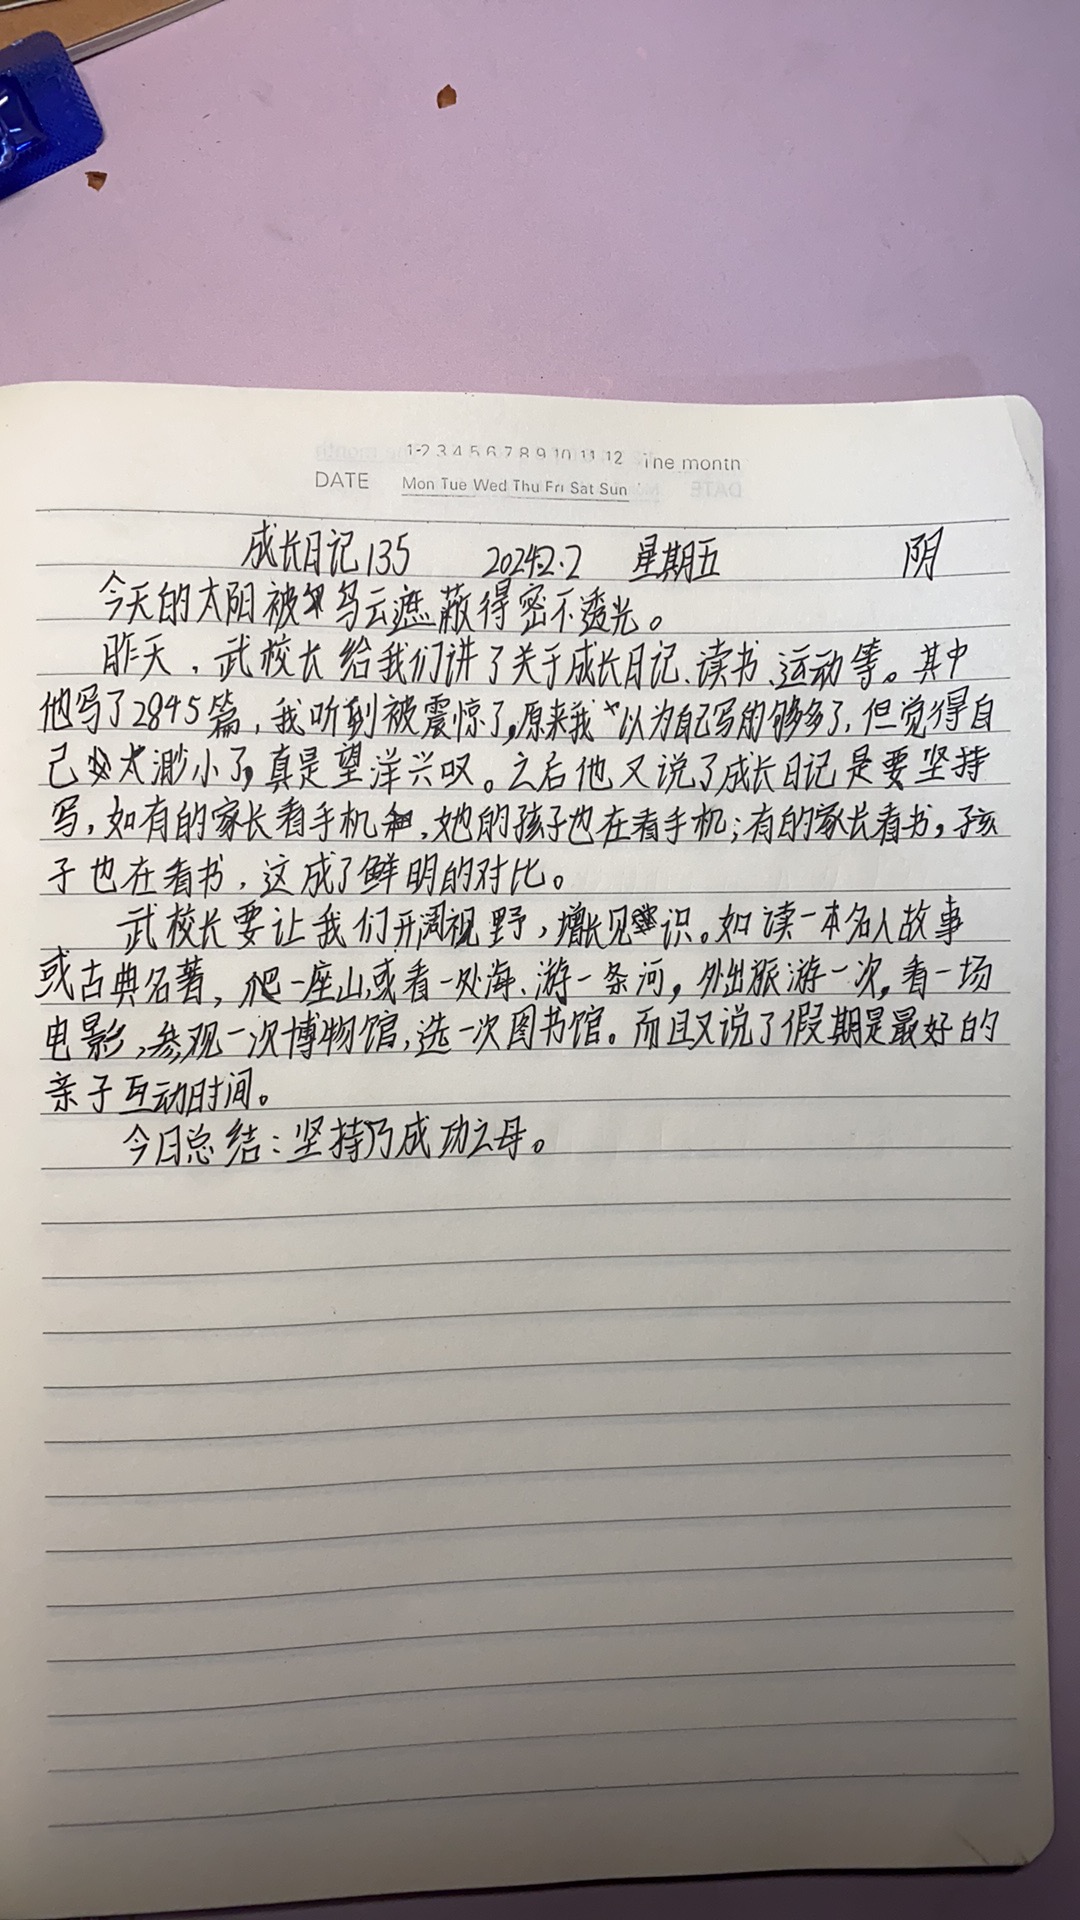 1 2 3 4 5 6 7 8 9 10 11 12 The month
DATE Mon Tue Wed Thu Fri Sat Sun
成长日记135 2024.2.2 星期五 阴
今天的太阳被乌云遮蔽得密不透光。
昨天，武校长给我们讲了关于成长日记、读书、运动等。其中
他写了2845篇，我听到被震惊了，原来我以为自己写的够多了，但觉得自
己太渺小了，真是望洋兴叹。之后他又说了成长日记是要坚持
写，如有的家长看手机，她的孩子也在看手机；有的家长看书，孩
子也在看书，这成了鲜明的对比。
武校长要让我们开阔视野，增长见识。如读一本名人故事
或古典名著，爬一座山或看一处海、游一条河，外出旅游一次，看一场
电影，参观一次博物馆，选一次图书馆。而且又说了假期是最好的
亲子互动时间。
今日总结：坚持乃成功之母。